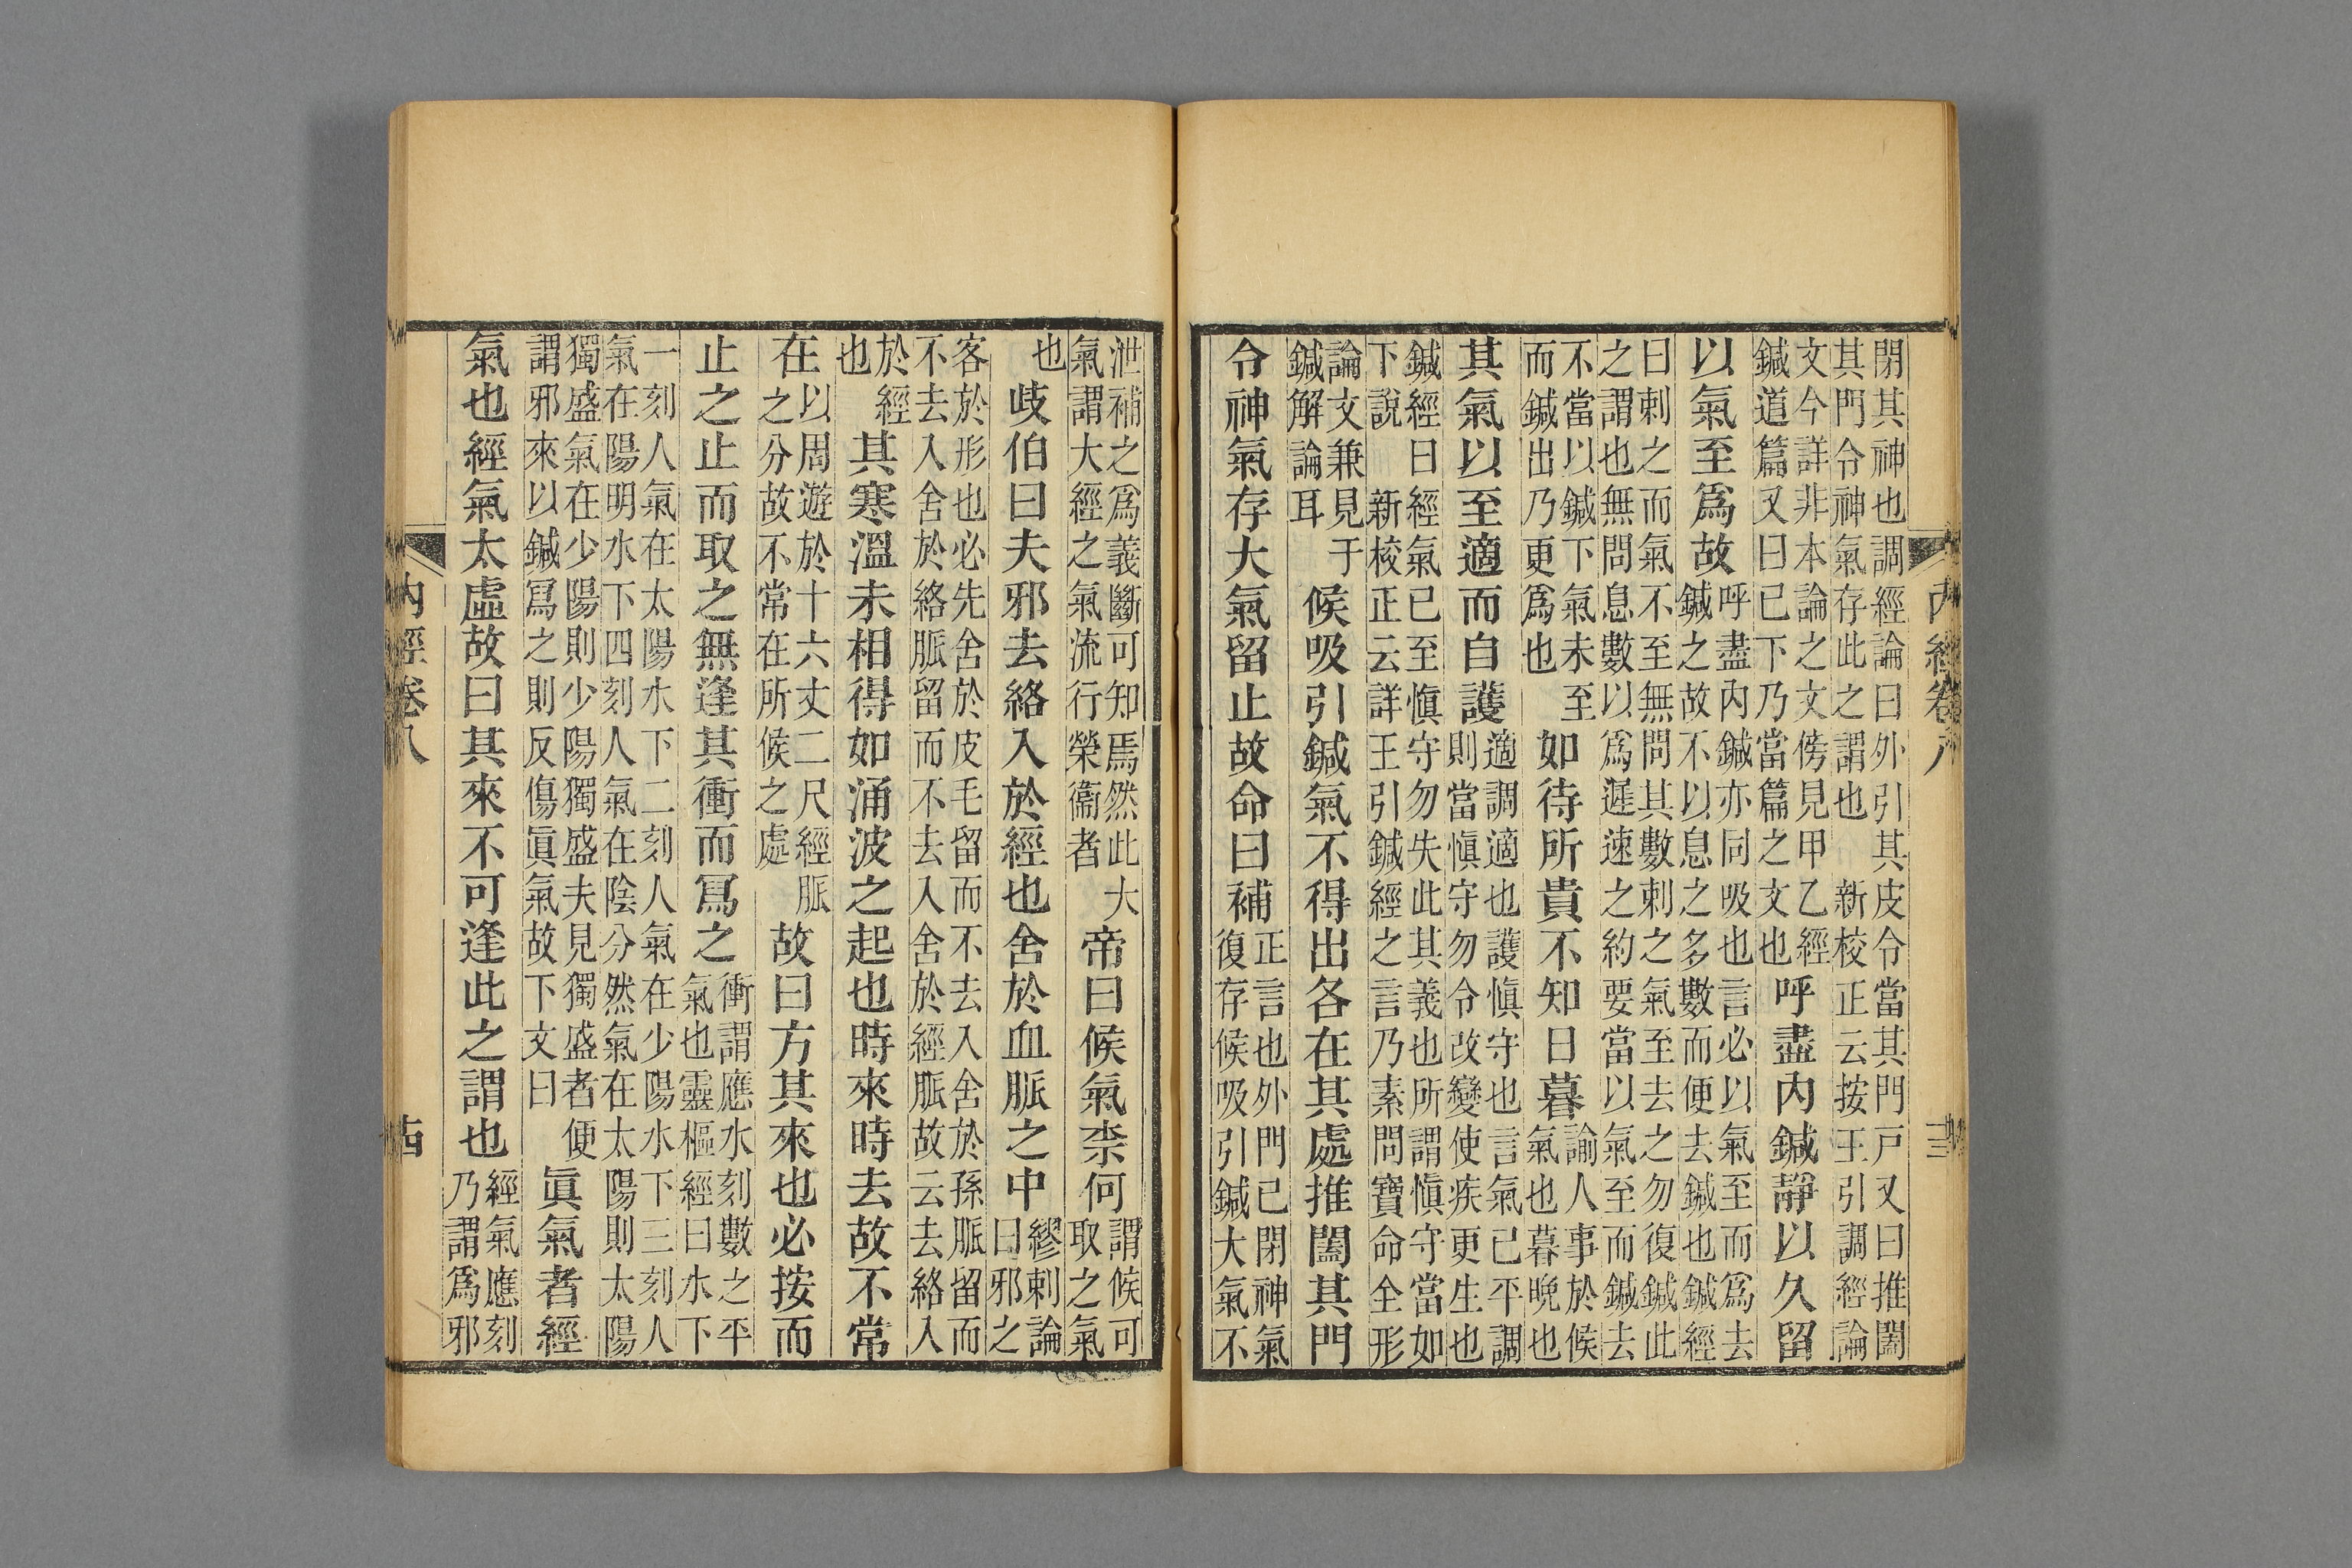 內經卷八
十三
閉其神也調經論曰外引其皮令當其門戸又曰推闔
其門令神氣存此之謂也 新校正云按王引調經論
文今詳非本論之文傍見甲乙經
鍼道篇又曰已下乃當篇之文也
呼盡內鍼靜以久留
以氣至爲故
呼盡內鍼亦同吸也言必以氣至而爲去
鍼之故不以息之多數而便去鍼也鍼經
曰刺之而氣不至無問其數刺之氣至去之勿復鍼此
之謂也無問息數以爲遲速之約要當以氣至而鍼去
不當以鍼下氣未至
而鍼出乃更爲也
如待所貴不知日暮
諭人事於候
氣也暮晚也
其氣以至適而自護
適調適也護慎守也言氣已平調
則當慎守勿令改變使疾更生也
鍼經曰經氣已至慎守勿失此其義也所謂慎守當如
下說 新校正云詳王引鍼經之言乃素問寶命全形
論文兼見于
鍼解論耳
候吸引鍼氣不得出各在其處推闔其門
令神氣存大氣留止故命曰補
正言也外門已閉神氣
復存候吸引鍼大氣不
泄補之爲義斷可知焉然此大
氣謂大經之氣流行榮衞者
帝曰候氣柰何
謂候可
取之氣
也
歧伯曰夫邪去絡入於經也舍於血脈之中
繆刺論
曰邪之
客於形也必先舍於皮毛留而不去入舍於孫脈留而
不去入舍於絡脈留而不去入舍於經脈故云去絡入
於經
也
其寒溫未相得如涌波之起也時來時去故不常
在
以周遊於十六丈二尺經脈
之分故不常在所候之處
故曰方其來也必按而
止之止而取之無逢其衝而冩之
衝謂應水刻數之平
氣也靈樞經曰水下
一刻人氣在太陽水下二刻人氣在少陽水下三刻人
氣在陽明水下四刻人氣在陰分然氣在太陽則太陽
獨盛氣在少陽則少陽獨盛夫見獨盛者便
謂邪來以鍼冩之則反傷眞氣故下文曰
眞氣者經
氣也經氣太虛故曰其來不可逢此之謂也
經氣應刻
乃謂爲邪
內經卷八
十四